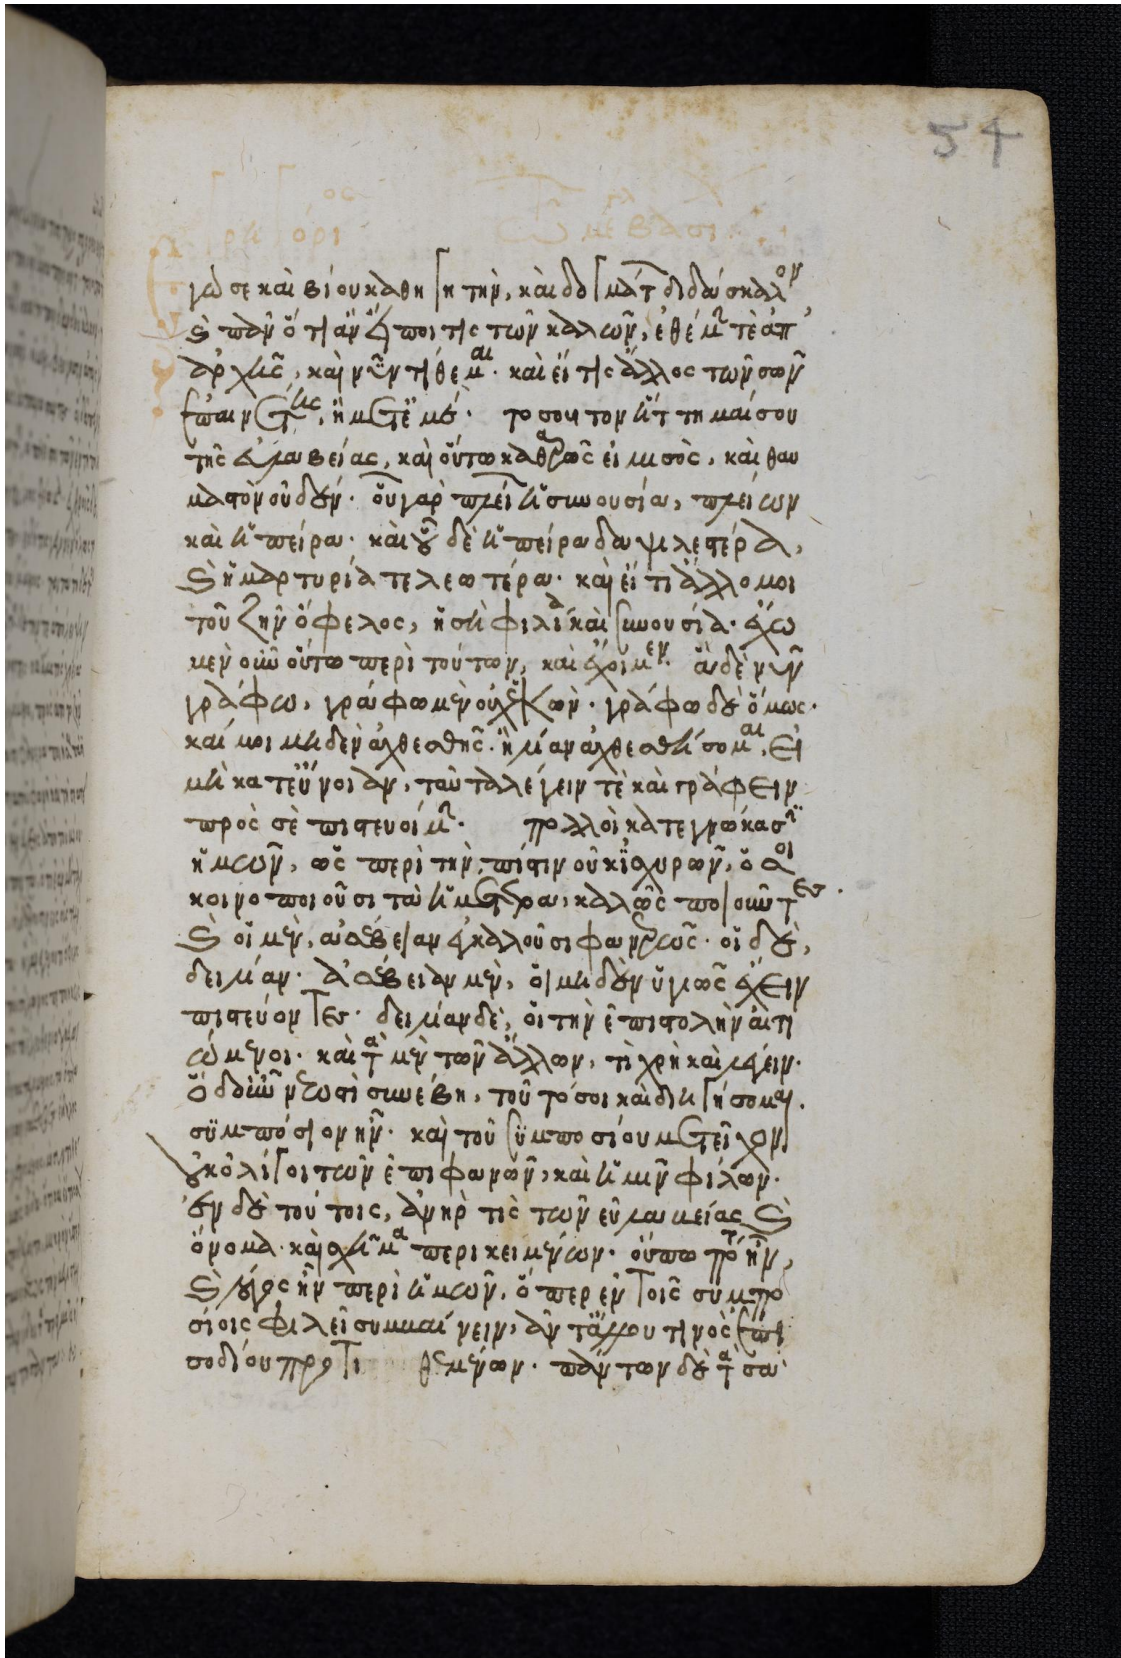 54
Γρηγόρι τῶ μεγ βασι
γώ σε καὶ βίου καθηγητὴν, καὶ δογμάτ διδάσκαλον
καὶ πᾶν ὅ τι ἂν εἴποι τις τῶν καλῶν, ἐθέμην τὲ ἀπ'
ἀρχῆς, καὶ νῦν τίθεμαι. καὶ εἴ τις ἄλλος τῶν σῶν
ἐπαινέτης, ἢ μετ' ἐμοῦ. τοσοῦτον ἥττημαί σου
τῆς εὐλαβείας, καὶ οὕτω καθαρῶς εἰμι σὸς, καὶ θαυ
μαστὸν οὐδέν. οὗ γὰρ πλεί ἡ συνουσία, πλείων
καὶ ἡ πείρα. καὶ οὗ δὲ ἡ πείρα δαψιλεστέρα,
καὶ ἡ μαρτυρία τελεωτέρα. καὶ εἴ τι ἄλλο μοι
τοῦ ζῆν ὄφελος, ἡ σὴ φιλία καὶ συνουσία. ἔχω
μὲν οὖν οὕτω περὶ τούτων, καὶ ἔχοιμεν. ἃ δὲ νῦν
γράφω, γράφω μὲν οὐχ ἑκών. γράφω δὲ ὅμως.
καί μοι μηδὲν ἀχθεσθῆς. ἢ λίαν ἀχθεσθήσομαι, εἰ
μὴ κατ' εὔνοιαν, ταῦτα λέγειν τὲ καὶ γράφειν
πρὸς σὲ πιστευοίμην. πολλοὶ κατεγνώκασιν
ἡμῶν, ὡς περὶ τὴν πίστιν οὐκ ἰσχυρῶν, ὅσοι
κοινοποιοῦσι τὰ ἡμέτερα, καλῶς ποιοῦντες.
καὶ οἱ μὲν, ἀσέβειαν ἐγκαλοῦσι φανερῶς. οἱ δὲ,
δειλίαν. ἀσέβειαν μὲν, οἱ μηδὲν ὑγιῶς ἔχειν
πιστεύοντες. δειλίαν δὲ, οἱ τὴν ἐπιστολὴν αἰτι
ώμενοι. καὶ τὰ μὲν τῶν ἄλλων, τί χρὴ καὶ λέγειν.
ὃ δὲ οὖν ἔναγχος συνέβη, τοῦτό σοι καὶ διηγήσομαι.
συμπόσιον ἦν. καὶ τοῦ συμποσίου μετεῖχον
οὐκ ὀλίγοι τῶν ἐπιφανῶν, καὶ ἡμῖν φίλων.
ἐν δὲ τούτοις, ἀνὴρ τίς τῶν εὐλαβείας καὶ
ὄνομα καὶ σχῆμα περικειμένων. οὔπω πότος ἦν,
καὶ λόγος ἦν περὶ ἡμῶν, ὅπερ ἐν τοῖς συμπο
σίοις φιλεῖ συμβαίνειν, ἀντ' ἄλλου τινὸς ἐπει
σοδίου προτιθεμένων. πάντων δὲ τὰ σὰ